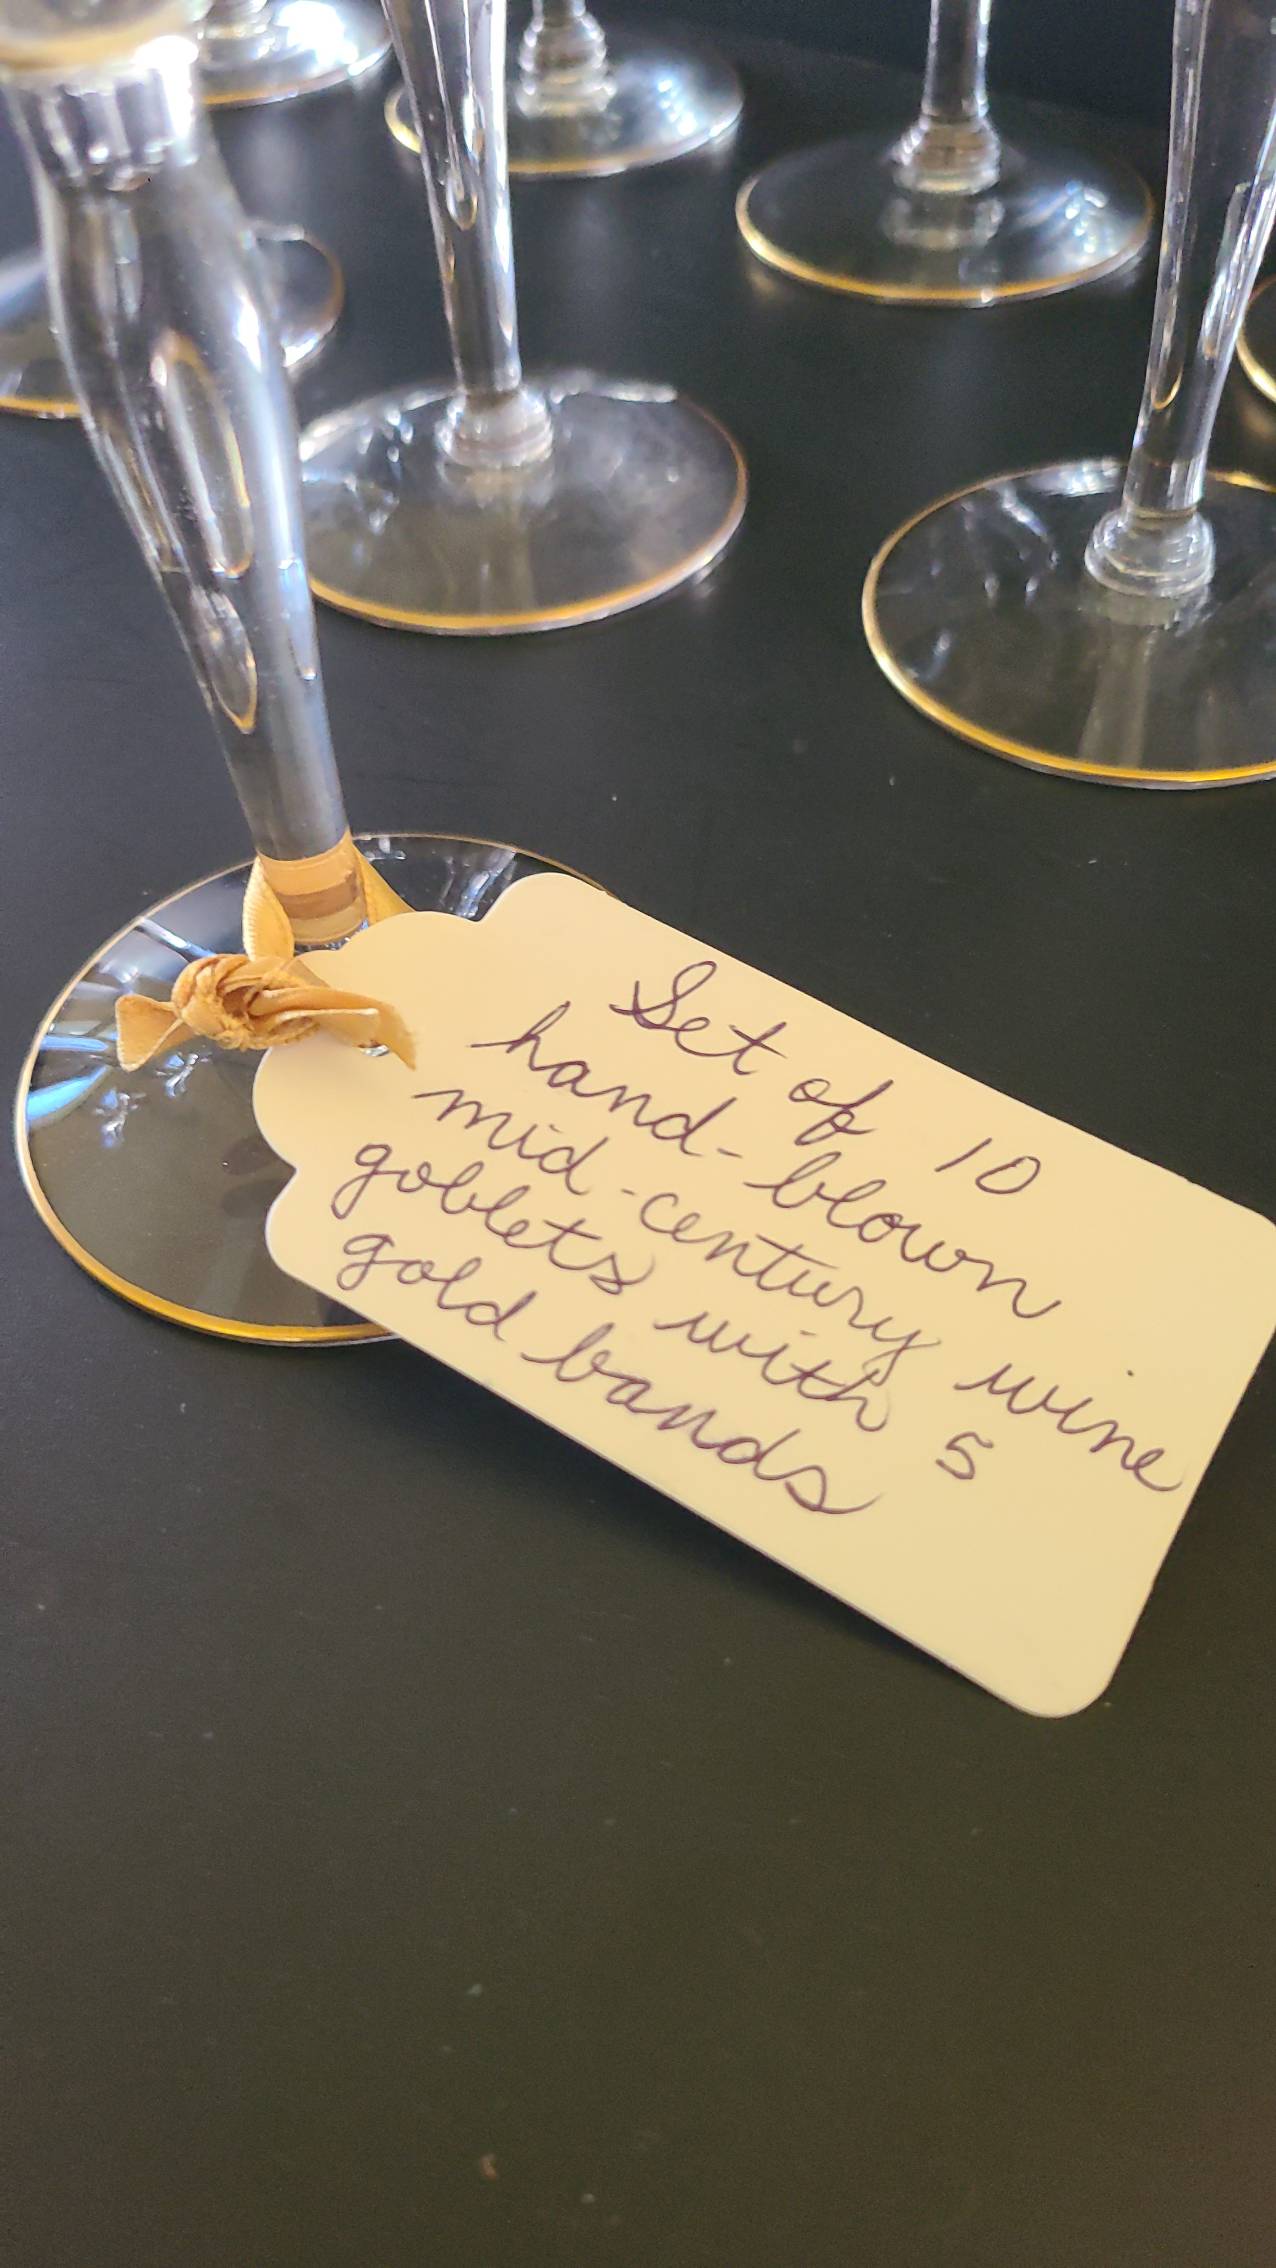 Set of 10
hand-blown
mid-century wine
goblets with 5
gold bands